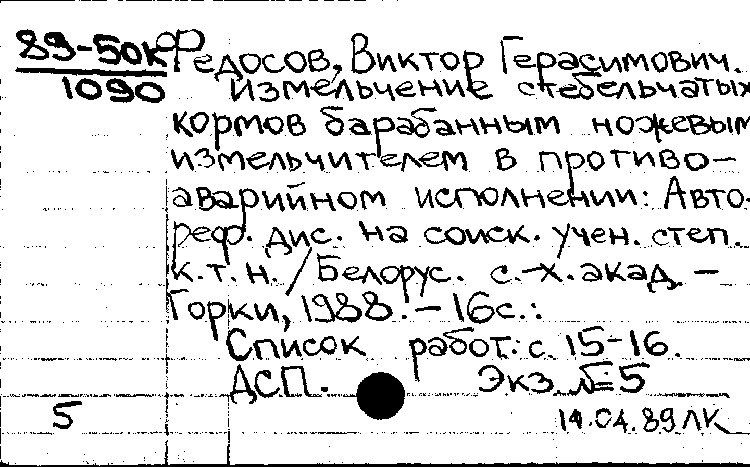 89-50к Федосов, Виктор Герасимович.
1090 Измельчение стебельчатых
кормов барабанным ножевым
измельчителем в противо-
аварийном исполнении: Авто-
реф. дис. на соиск. учен. степ.
к.т.н. / Белорус. с.-х. акад. -
Горки, 1988. - 16с.:
Список работ: с. 15-16.
ДСП. Экз. №5
5 14.04.89 ЛК